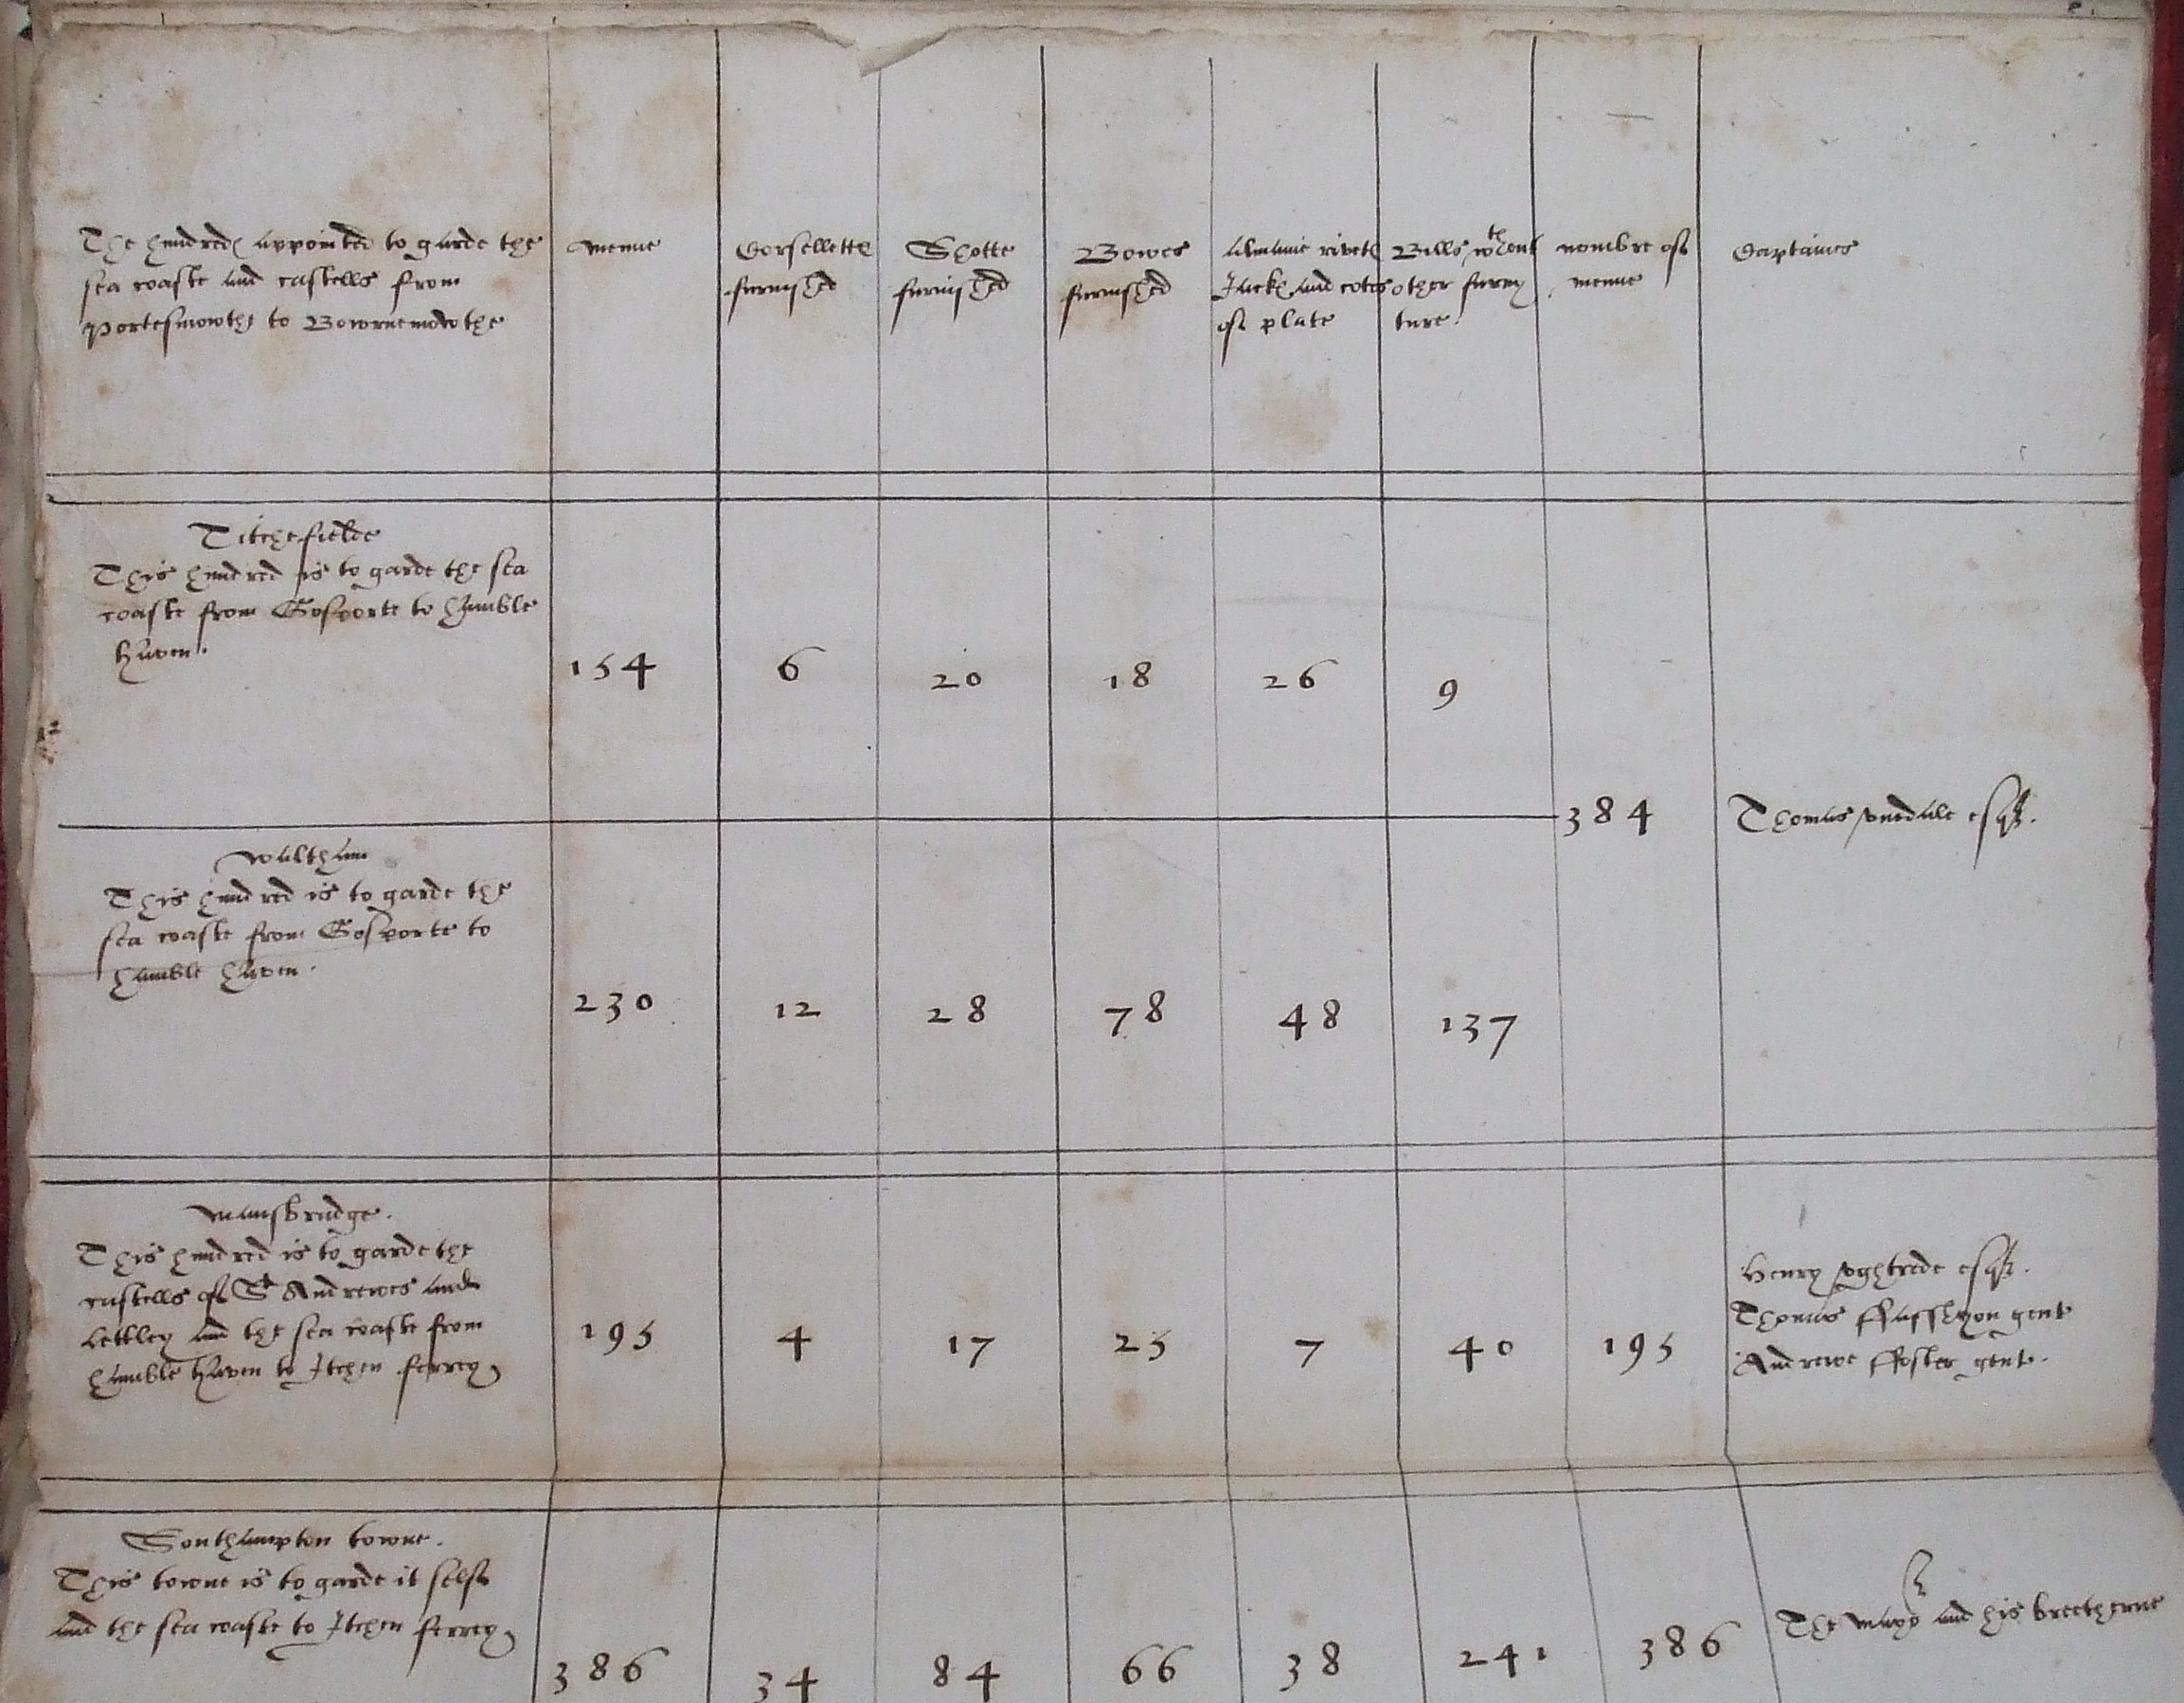 The hundreds appointed to garde the
sea coaste and castells from
Portesmowthe to Bowrnemowthe
menne
Corsellettes
furnished
Shotte
furnished
Bowes
furnished
Almaine rivetes
Jackes and cotes
of plate
Bills wthout
other furny
ture.
nombre of
menne
Captaines
Titchefielde
This hundred is to garde the sea
coaste from Gosporte to Hamble
Haven.
154 6 20 18 26 9
384 Thomas Uvedale esqr.
Waltham
This hundred is to garde the
sea coaste from Gosporte to
Hamble Haven.
230 12 28 78 48 137
Mansbridge.
This hundred is to garde the
castells of St Andrewes and
Lettley and the sea coaste from
Hamble Haven to Itchen ferrey
195 4 17 25 7 40 195
Henry Ughtrede esqr.
Thomas gent
Andrewe ffoster gent.
Southampton towne.
This towne is to garde it selfe
and the sea coaste to Itchen ferrey
386 34 84 66 38 241 386
The Mayor and his breetherne